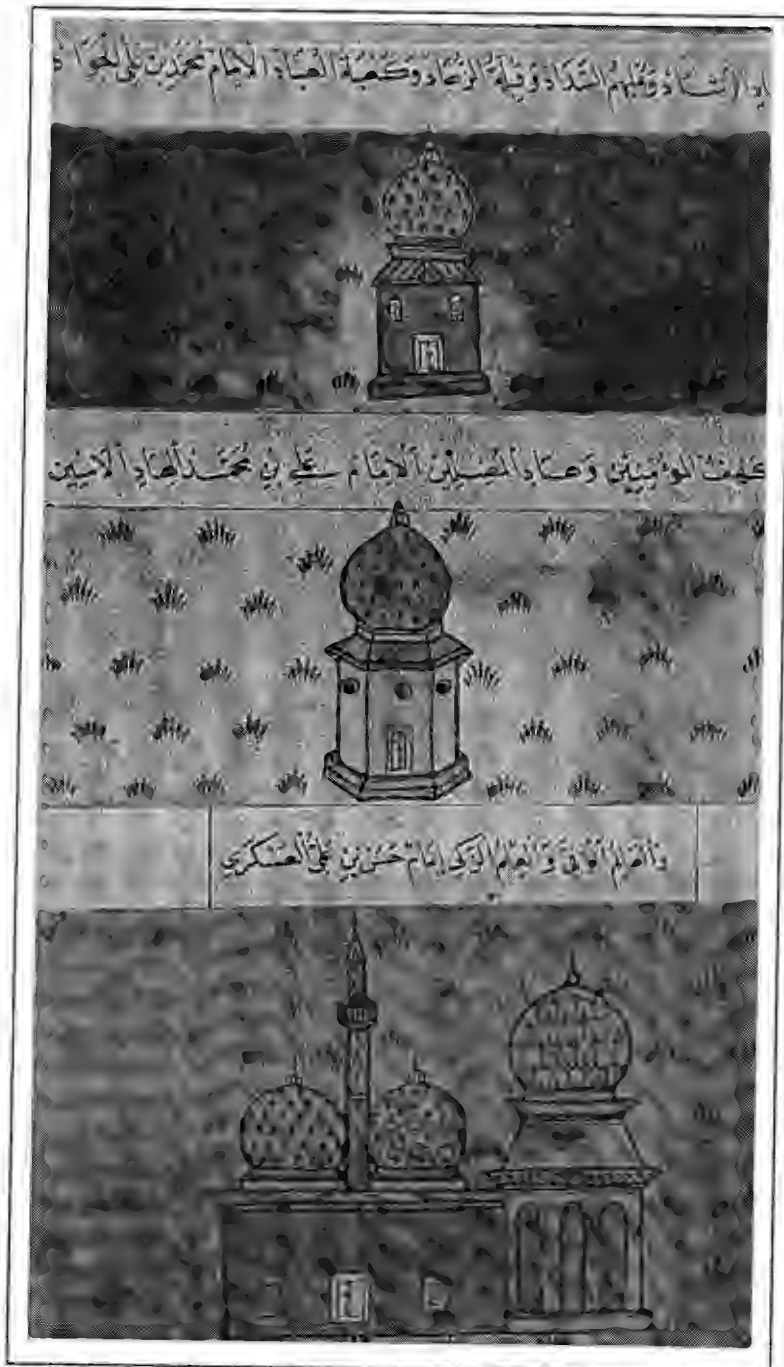 وقلبهم السداد وقبلة الزهاد وكعبة العباد الامام محمد بن علي الجواد
كهف المؤمنين وعماد المسلمين الامام علي بن محمد الهاد الامين
والعالم امام حسن بن علي العسكري